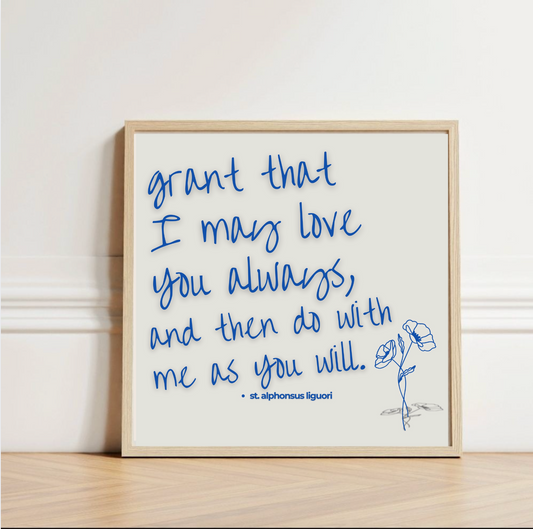 grant that
I may love
you always,
and then do with
me as you will.
• st. alphonsus liguori